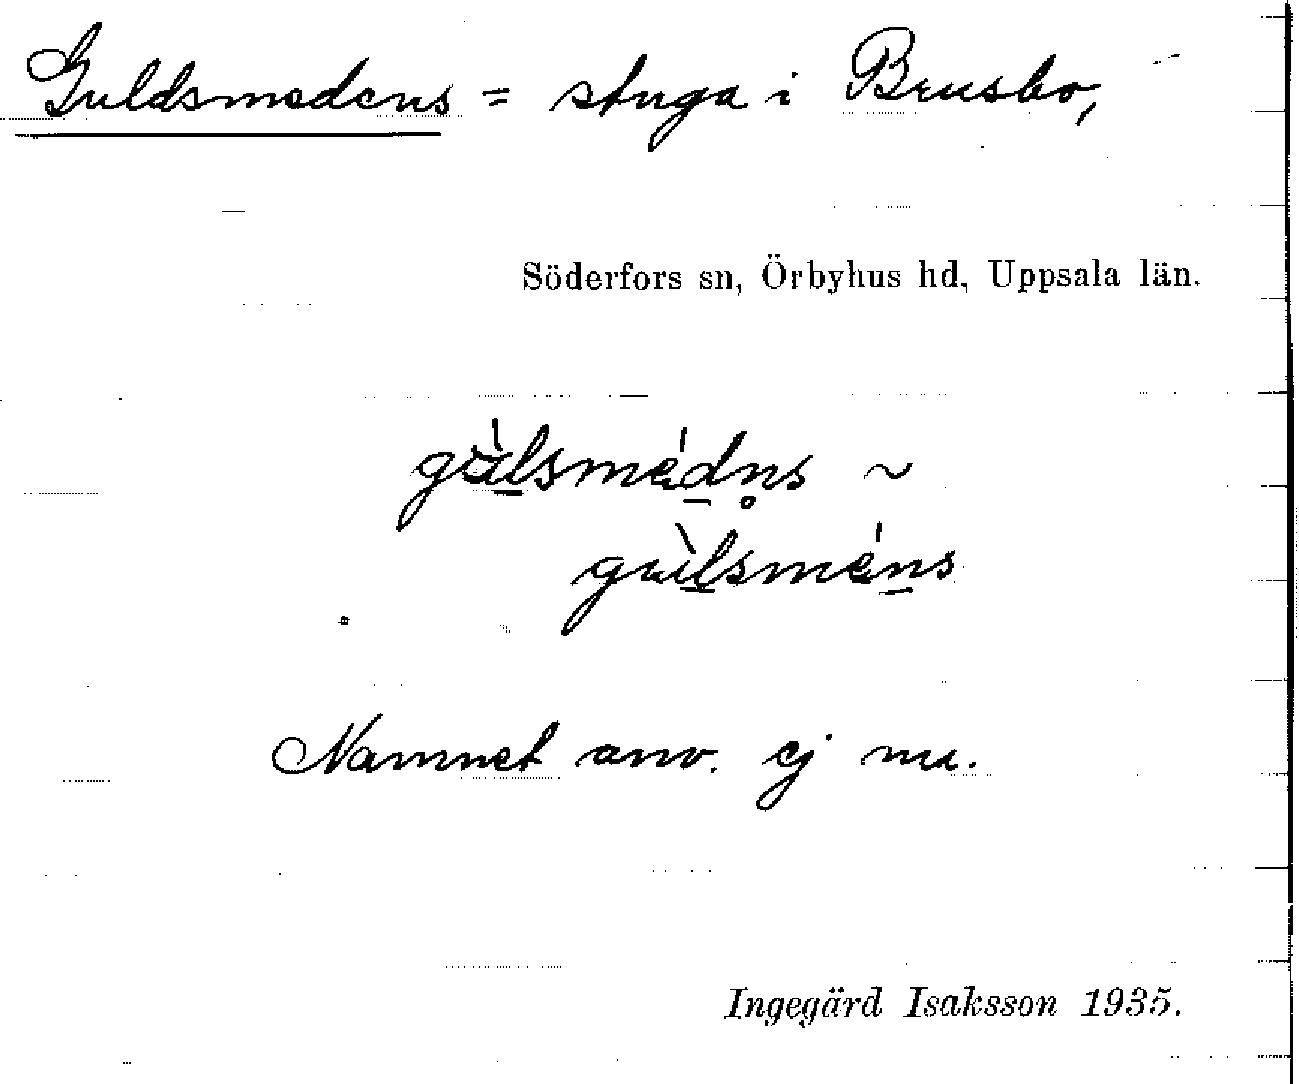 Guldsmedens = stuga i Brusbo,
Söderfors sn, Örbyhus hd, Uppsala län.
gùlsmédn̥s ~
gùlsméns
Namnet anv. ej nu.
Ingegärd Isaksson 1935.